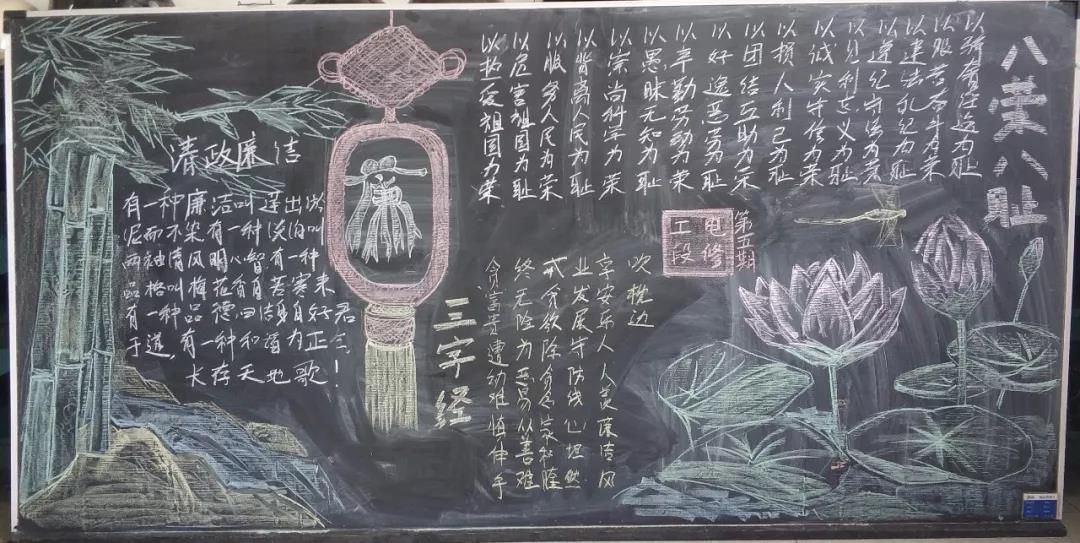 清政廉洁
有一种廉洁叫莲出淤
泥而不染有一种淡泊叫
两袖清风明心智有一种
品格叫梅花香自苦寒来
有一种品德叫洁身自好君
于道,有一种和谐为正
长存天地歌!
八荣八耻
以热爱祖国为荣
以危害祖国为耻
以服务人民为荣
以背离人民为耻
以崇尚科学为荣
以愚昧无知为耻
以辛勤劳动为荣
以好逸恶劳为耻
以团结互助为荣
以损人利己为耻
以诚实守信为荣
以见利忘义为耻
以遵纪守法为荣
以违法乱纪为耻
以艰苦奋斗为荣
以骄奢淫逸为耻
第五期
电修
工段
三字经
贪富贵遭劫难慎伸手
终无险为恶易从善难
戒贪欲除贪念家和隆
业发展守防线心坦然
享安乐人人 廉洁风
吹枕边